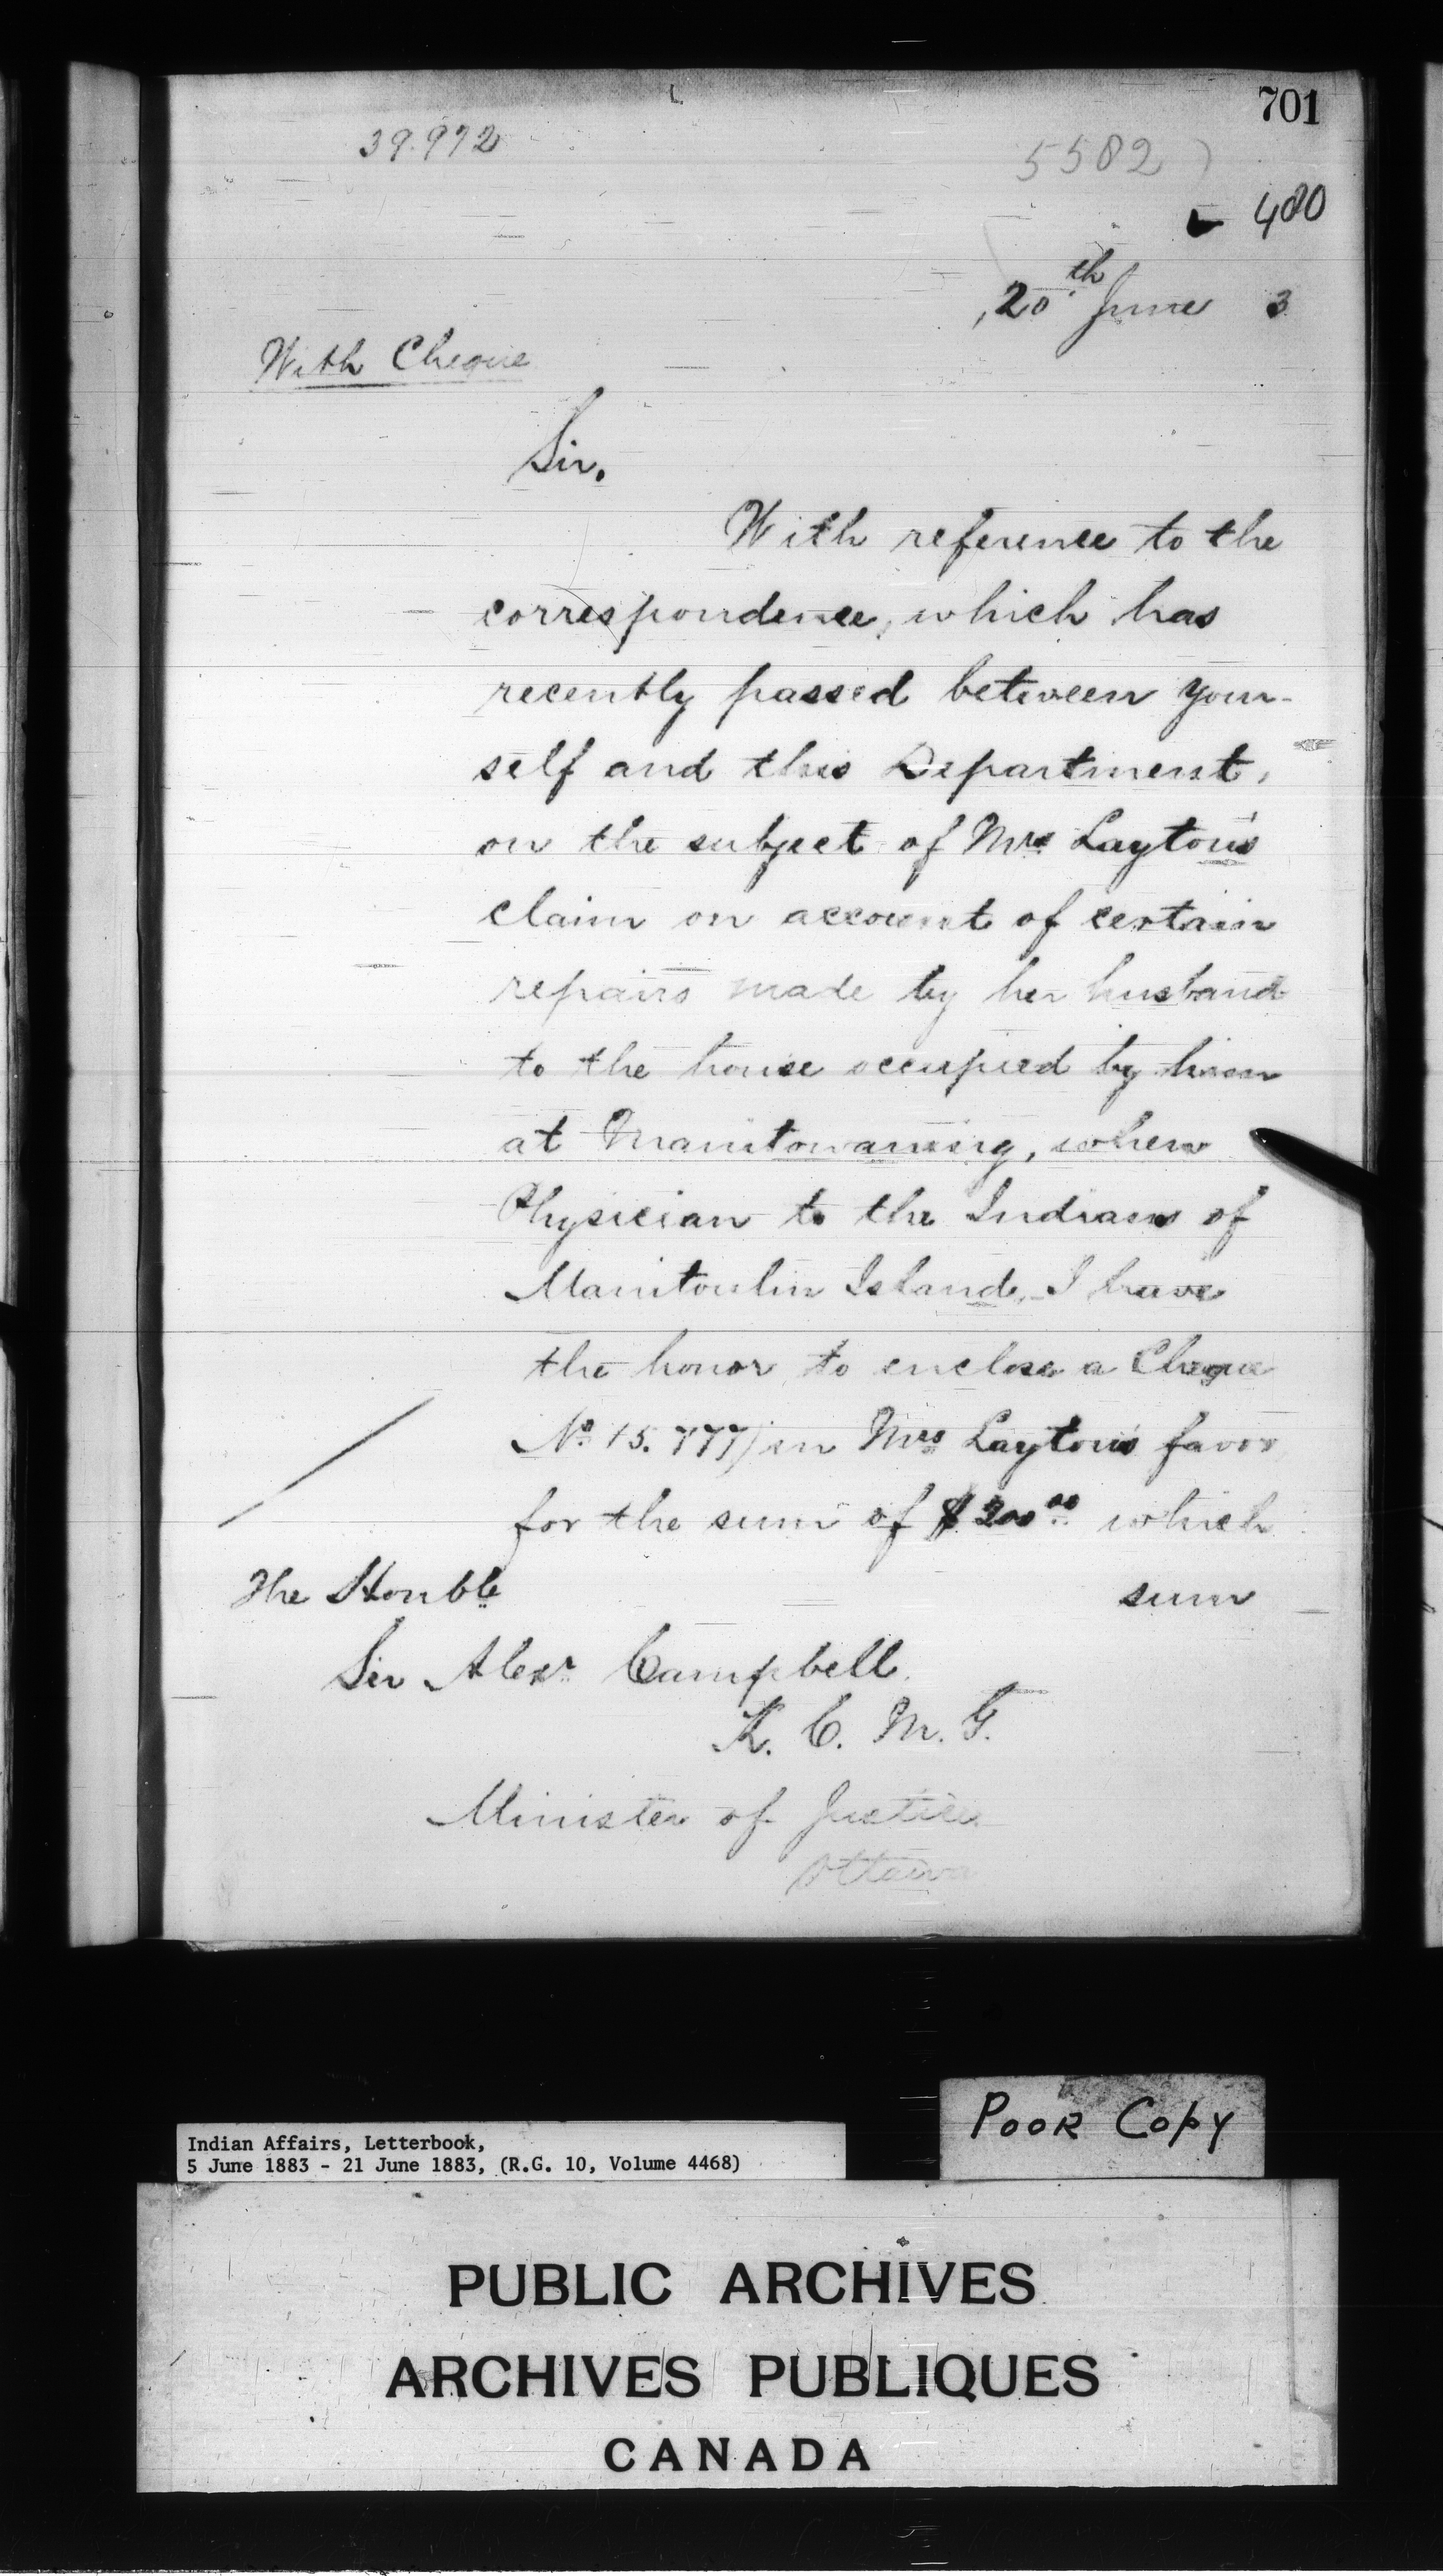 701
39.972
5582
480
20th June 3
With Cheque
Sir,
With reference to the
correspondence, which has
recently passed between your-
self and this Department,
on the subject of Mrs Layton's
claim on account of certain
repairs made by her husband
to the house occupied by him
at Manitowaning, when
Physician to the Indians of
Manitoulin Island, I have
the honor to enclose a Cheque
No 15.777) in Mrs Layton's favor
for the sum of $200.00 which
sum
The Honble
Sir Alexr Campbell
K. C. M. G.
Minister of Justice
Ottawa
Poor Copy
Indian Affairs, Letterbook,
5 June 1883 - 21 June 1883, (R.G. 10, Volume 4468)
PUBLIC ARCHIVES
ARCHIVES PUBLIQUES
CANADA